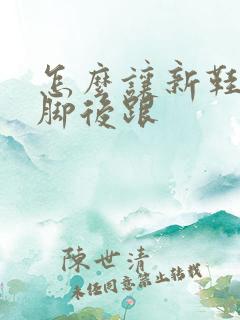 怎麼讓新鞋
腳後跟
陳世清
未经同意禁止转载